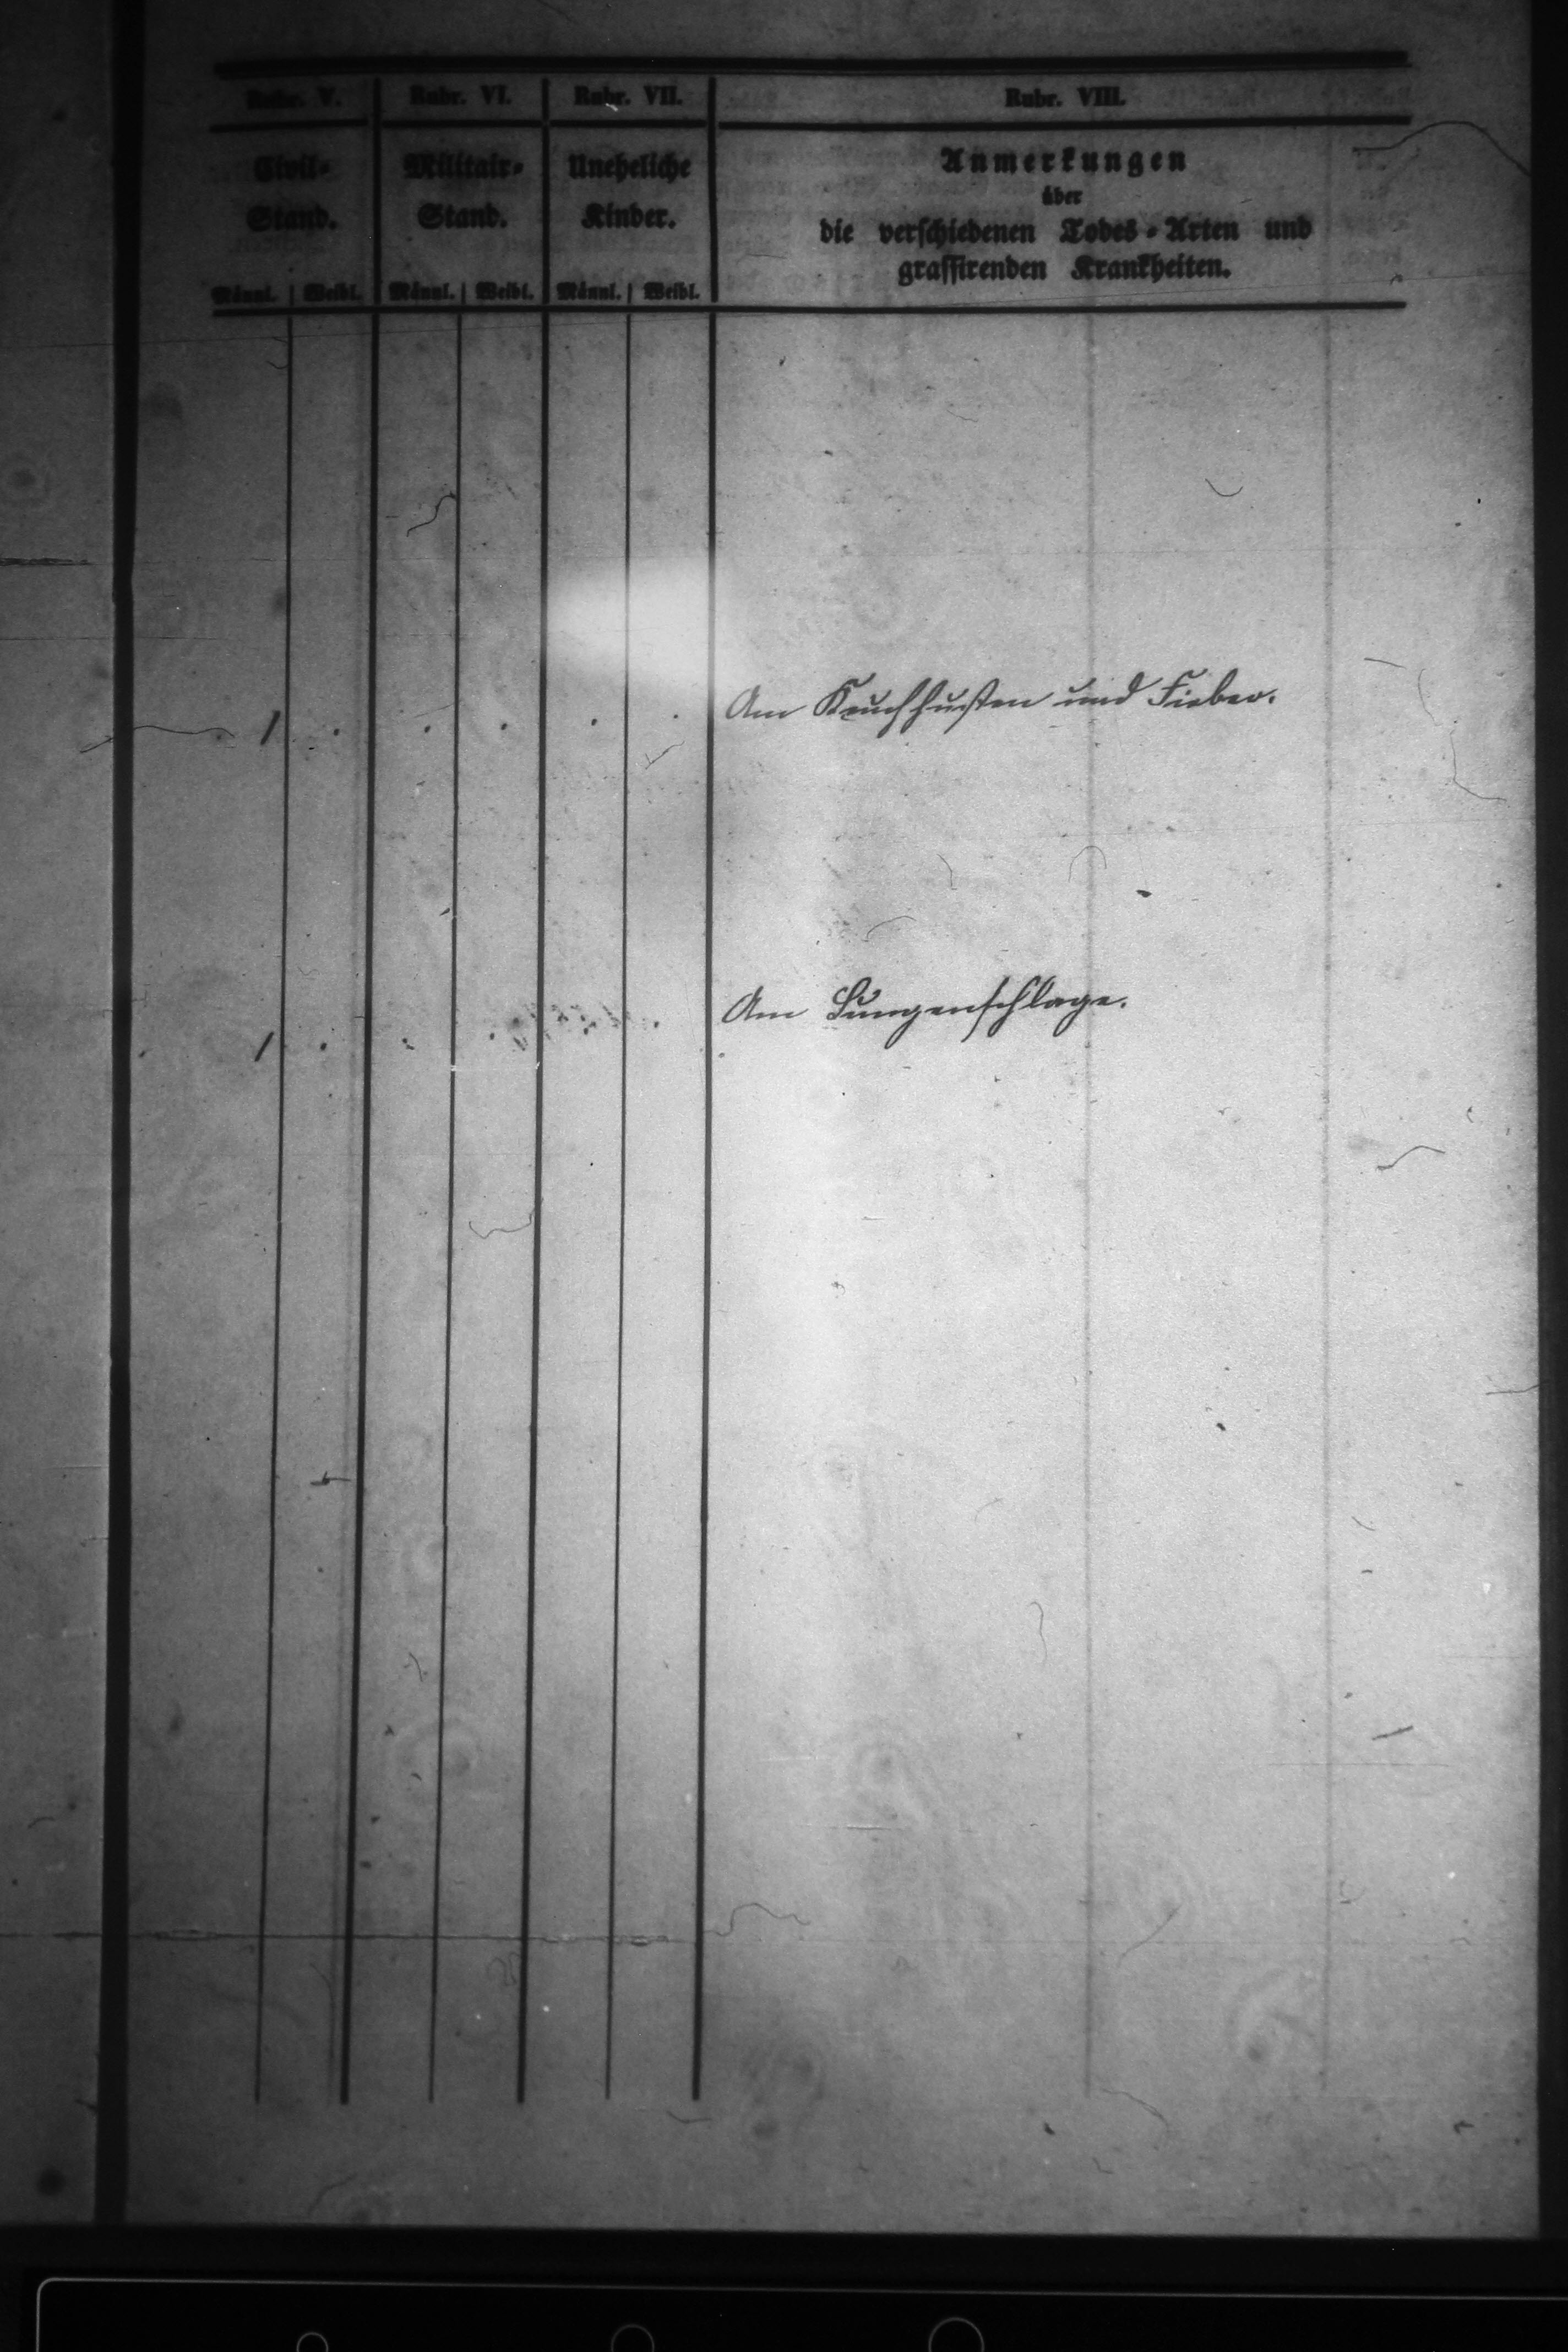 Rubr. V. Rubr. VI. Rubr. VII. Rubr. VIII.
Civil-
Stand.
Militair-
Stand.
Uneheliche
Kinder.
Anmerkungen
über
die verschiedenen Todes-Arten und
grassirenden Krankheiten.
Männl. Weibl. Männl. Weibl. Männl. Weibl.
Am Keuchhusten und Fieber.
. 1 . . . . .
Am Lungenschlage.
. 1 . . . .